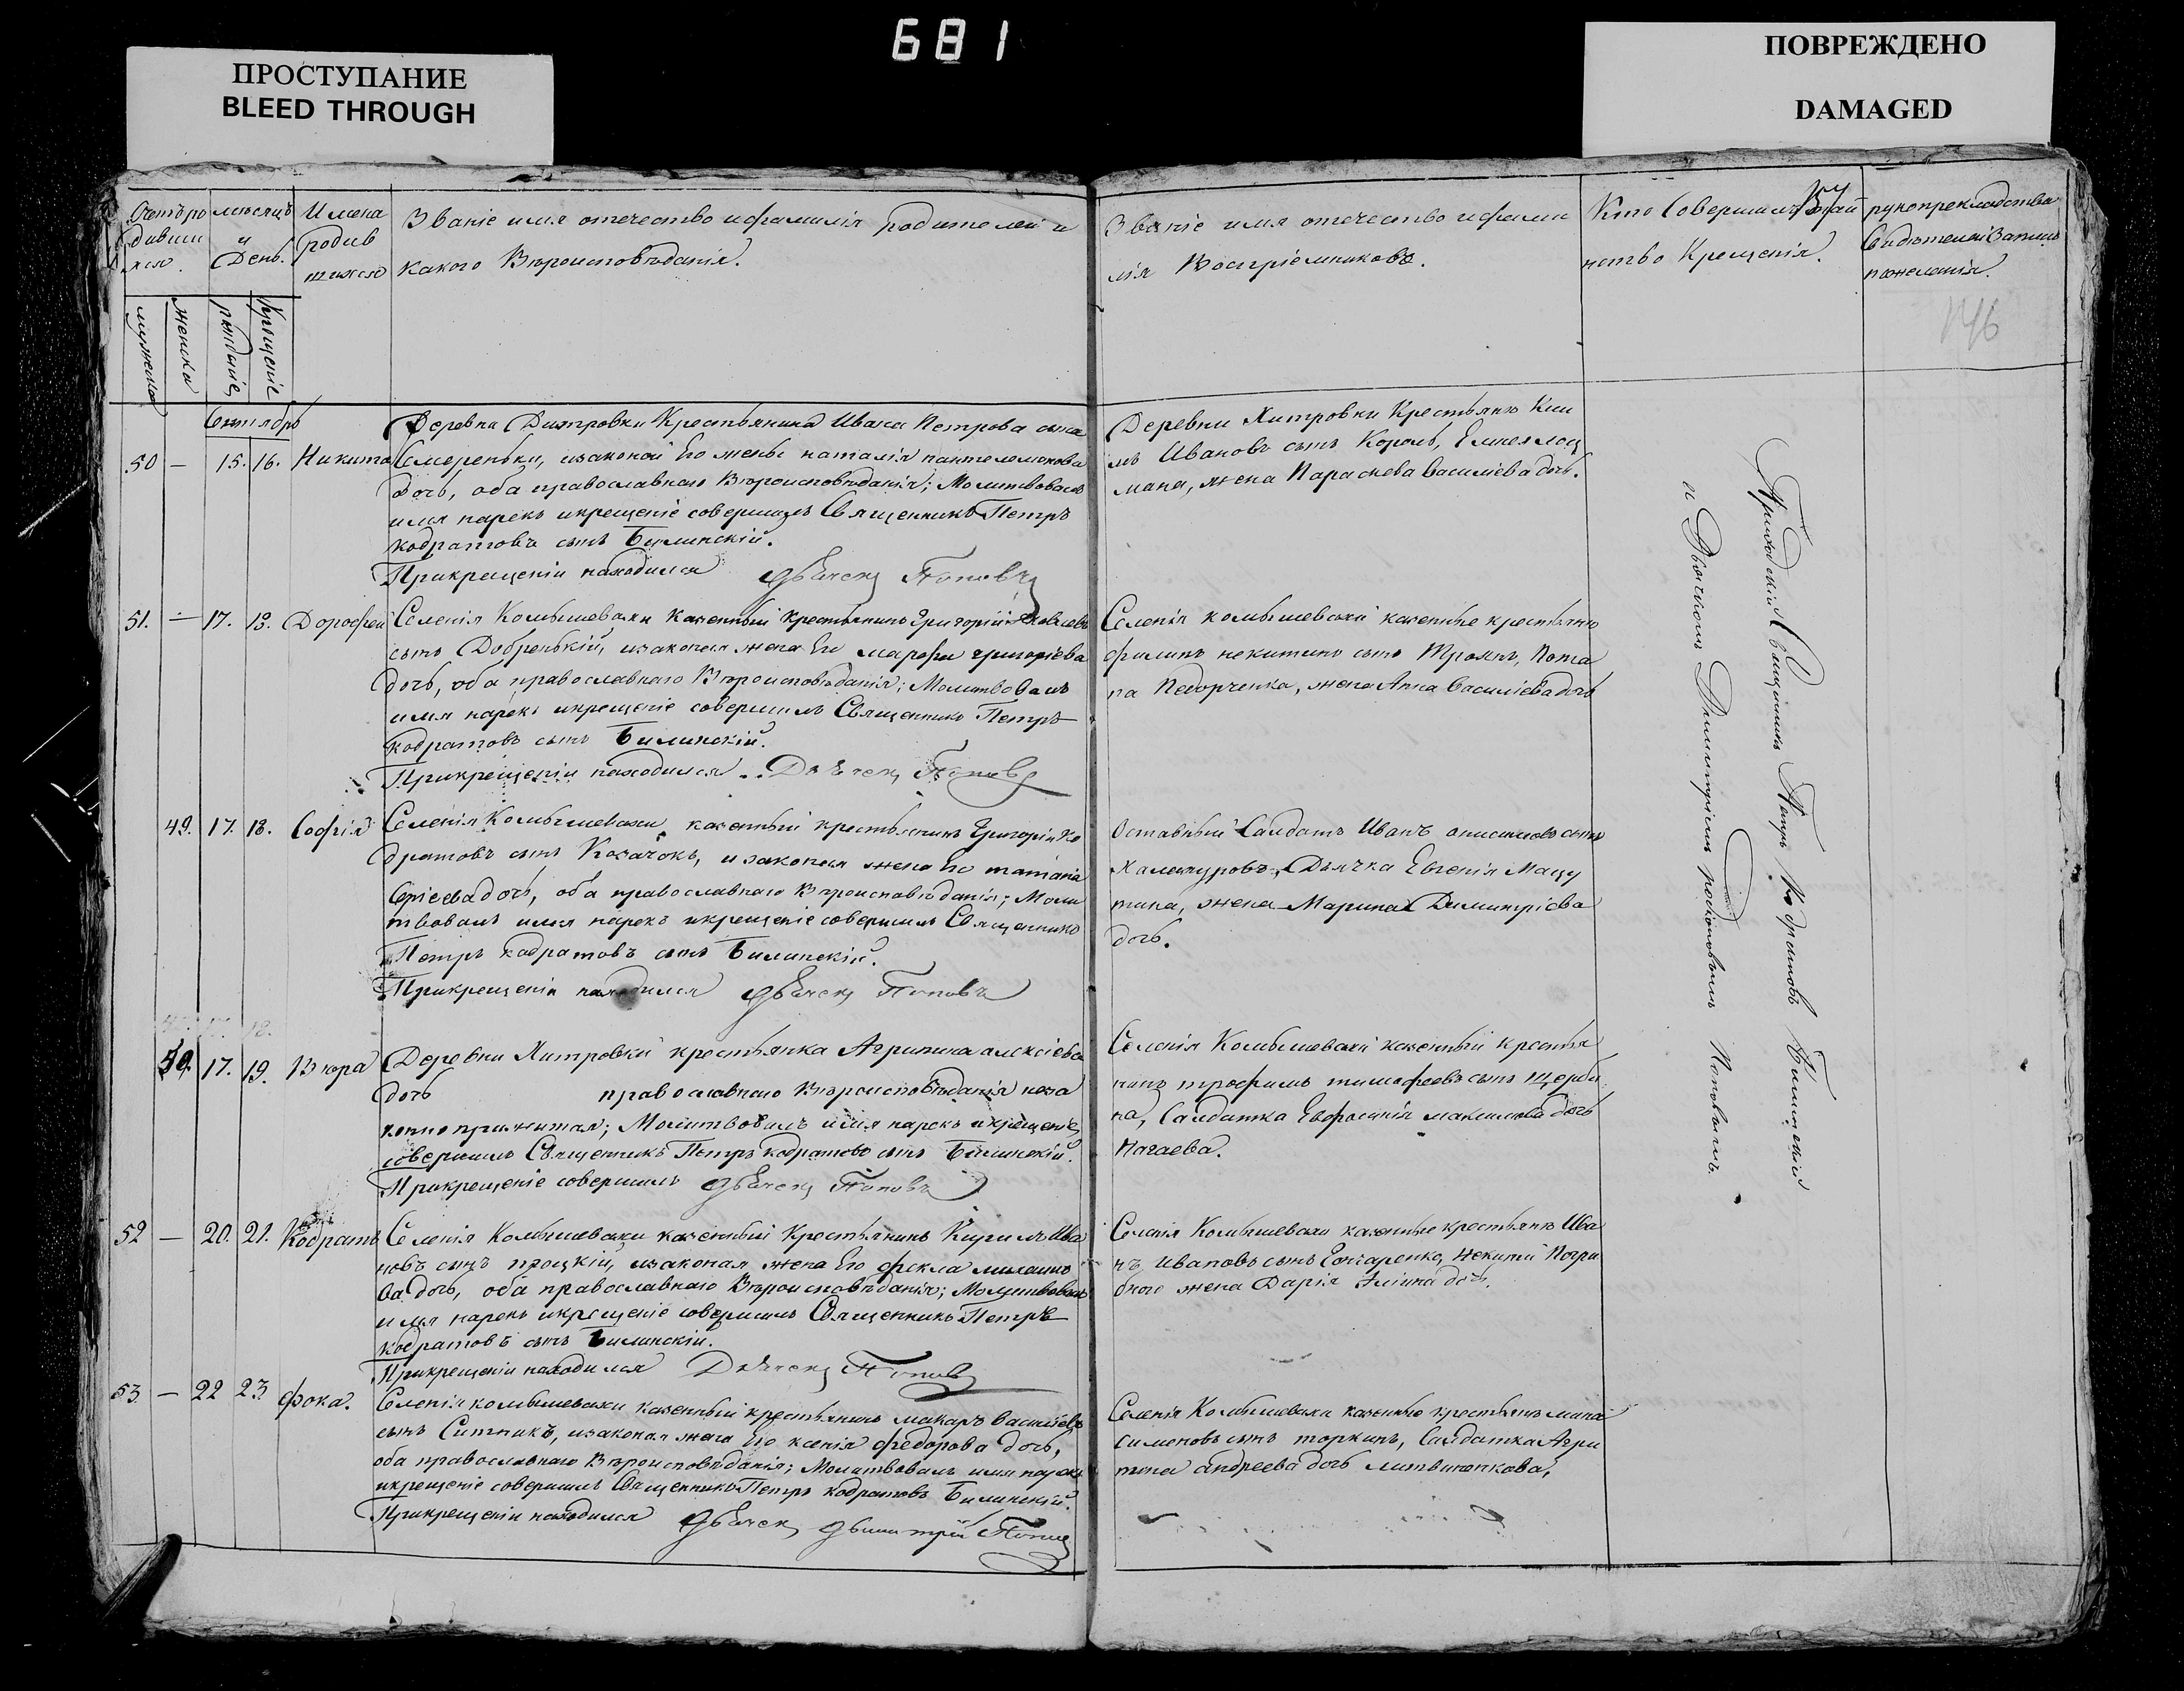 681
ПРОСТУПАНИЕ
BLEED THROUGH
ПОВРЕЖДЕНО
DAMAGED
мѣсяцъ
и
День.
Имена
родив
шихся
Званіе имя отечество ифамилія родителей и
какого Вѣроисповѣданія.
мужеска
женска
рожденіе
Крещеніе
Званіе имя отечество ифами
лія Воспріемниковъ.
Кто Совершилъ Таи
нство Крещенія.
рукоприкладства
Свидѣтелей
146
Сентябрь
50 — 15. 16. Никита
Деревни Дитровки Крестьянина Ивана Петрова сына
Смереньки, изаконой Его жены наталія пантелемонова
дочь, оба православнаго Вѣроисповѣданія; Молитвовалъ
имя нарекъ икрещеніе совершилъ Священникъ Петръ
кодратовъ сынъ Билинскій.
Прикрещеніи находился Дьячекъ Поповъ
Деревни Хитровки Крестьяне Ким
мъ Ивановъ сынъ Король,
жена Параскева Василіева дочь.
51. — 17. 18. Дорофей
Селенія Комышевахи Казенный крестьянинъ Григорій Яковлевъ
сынъ Добренькій, изаконая жена Его марфа григоріева
дочь, оба православнаго Вѣроисповѣданія; Молитвовалъ
имя нарекъ икрещеніе совершилъ Священникъ Петръ
кодратовъ сынъ Билинскій.
Прикрещеніи находился.. Дьячекъ Поповъ
Селенія комышевахи казенные крестьяне
филипъ никитинъ сынъ Троянъ, Пота
па Недорченка, жена Анна Василіева дочь
49. 17. 18. Софія
Селенія Комышевахи казенный крестьянинъ Григорій Ко
дратовъ сынъ Козачокъ, изаконая жена Его татіана
дочь, оба православнаго Вѣроисповѣданія; Моли
твовалъ имя нарекъ икрещеніе совершилъ Священникъ
Петръ кодратовъ сынъ Билинскій.
Прикрещеніи находился Дьячекъ Поповъ
Отставный Салдатъ Иванъ сынъ
Дьячка Евгенія Мацу
тина, жена Марина Димитріева
дочь.
50. 17. 19. Вѣра
Деревни Хитровки крестьянка Агрипина алексіева
дочь православнаго Вѣроисповѣданія неза
конно прижитая; Молитвовалъ имя нарекъ икрещеніе
совершилъ Священникъ Петръ кодратовъ сынъ Билинскій.
Прикрещеніе совершилъ Дьячекъ Поповъ
Селенія Комышевахи казенный крестья
нинъ трофимъ тимофеевъ сынъ Щерби
на, Салдатка Евфросинія максимова дочь
Ногаева.
52 — 20. 21. Кодратъ
Селенія Комышевахи казенный Крестьянинъ Кирилъ Ива
новъ сынъ процкій, изаконая жена Его фекла михаило
ва дочь, оба православнаго Вѣроисповѣданія; Молитвовалъ
имя нарекъ икрещеніе совершилъ Священникъ Петръ
кодратовъ сынъ Билинскій.
Прикрещеніи находился Дьячекъ Поповъ
Селенія Комышевахи казенные крестьяне Ива
нъ Ивановъ сынъ Гончаренко, Некиты Погри
бного жена Дарія Иліина дочь.
53 — 22 23 Фока.
Селенія комышевахи казенный крестьянинъ макаръ Василіевъ
сынъ Ситникъ, изаконая жена Его ксенія федорова дочь,
оба православнаго Вѣроисповѣданія; Молитвовалъ имя нарекъ
икрещеніе совершилъ Священникъ Петръ кодратовъ Билинскій.
Прикрещеніи находился Дьячекъ Дмитрій Поповъ
Селенія Комышевахи казенные крестьяне мина
симоновъ сынъ торкинъ, Салдатка Агри
пина андреева дочь литвиненкова,
Приходскій Священникъ Петръ Кодратовъ Билинскій
и Дьячкомъ Димитріемъ Поповымъ.